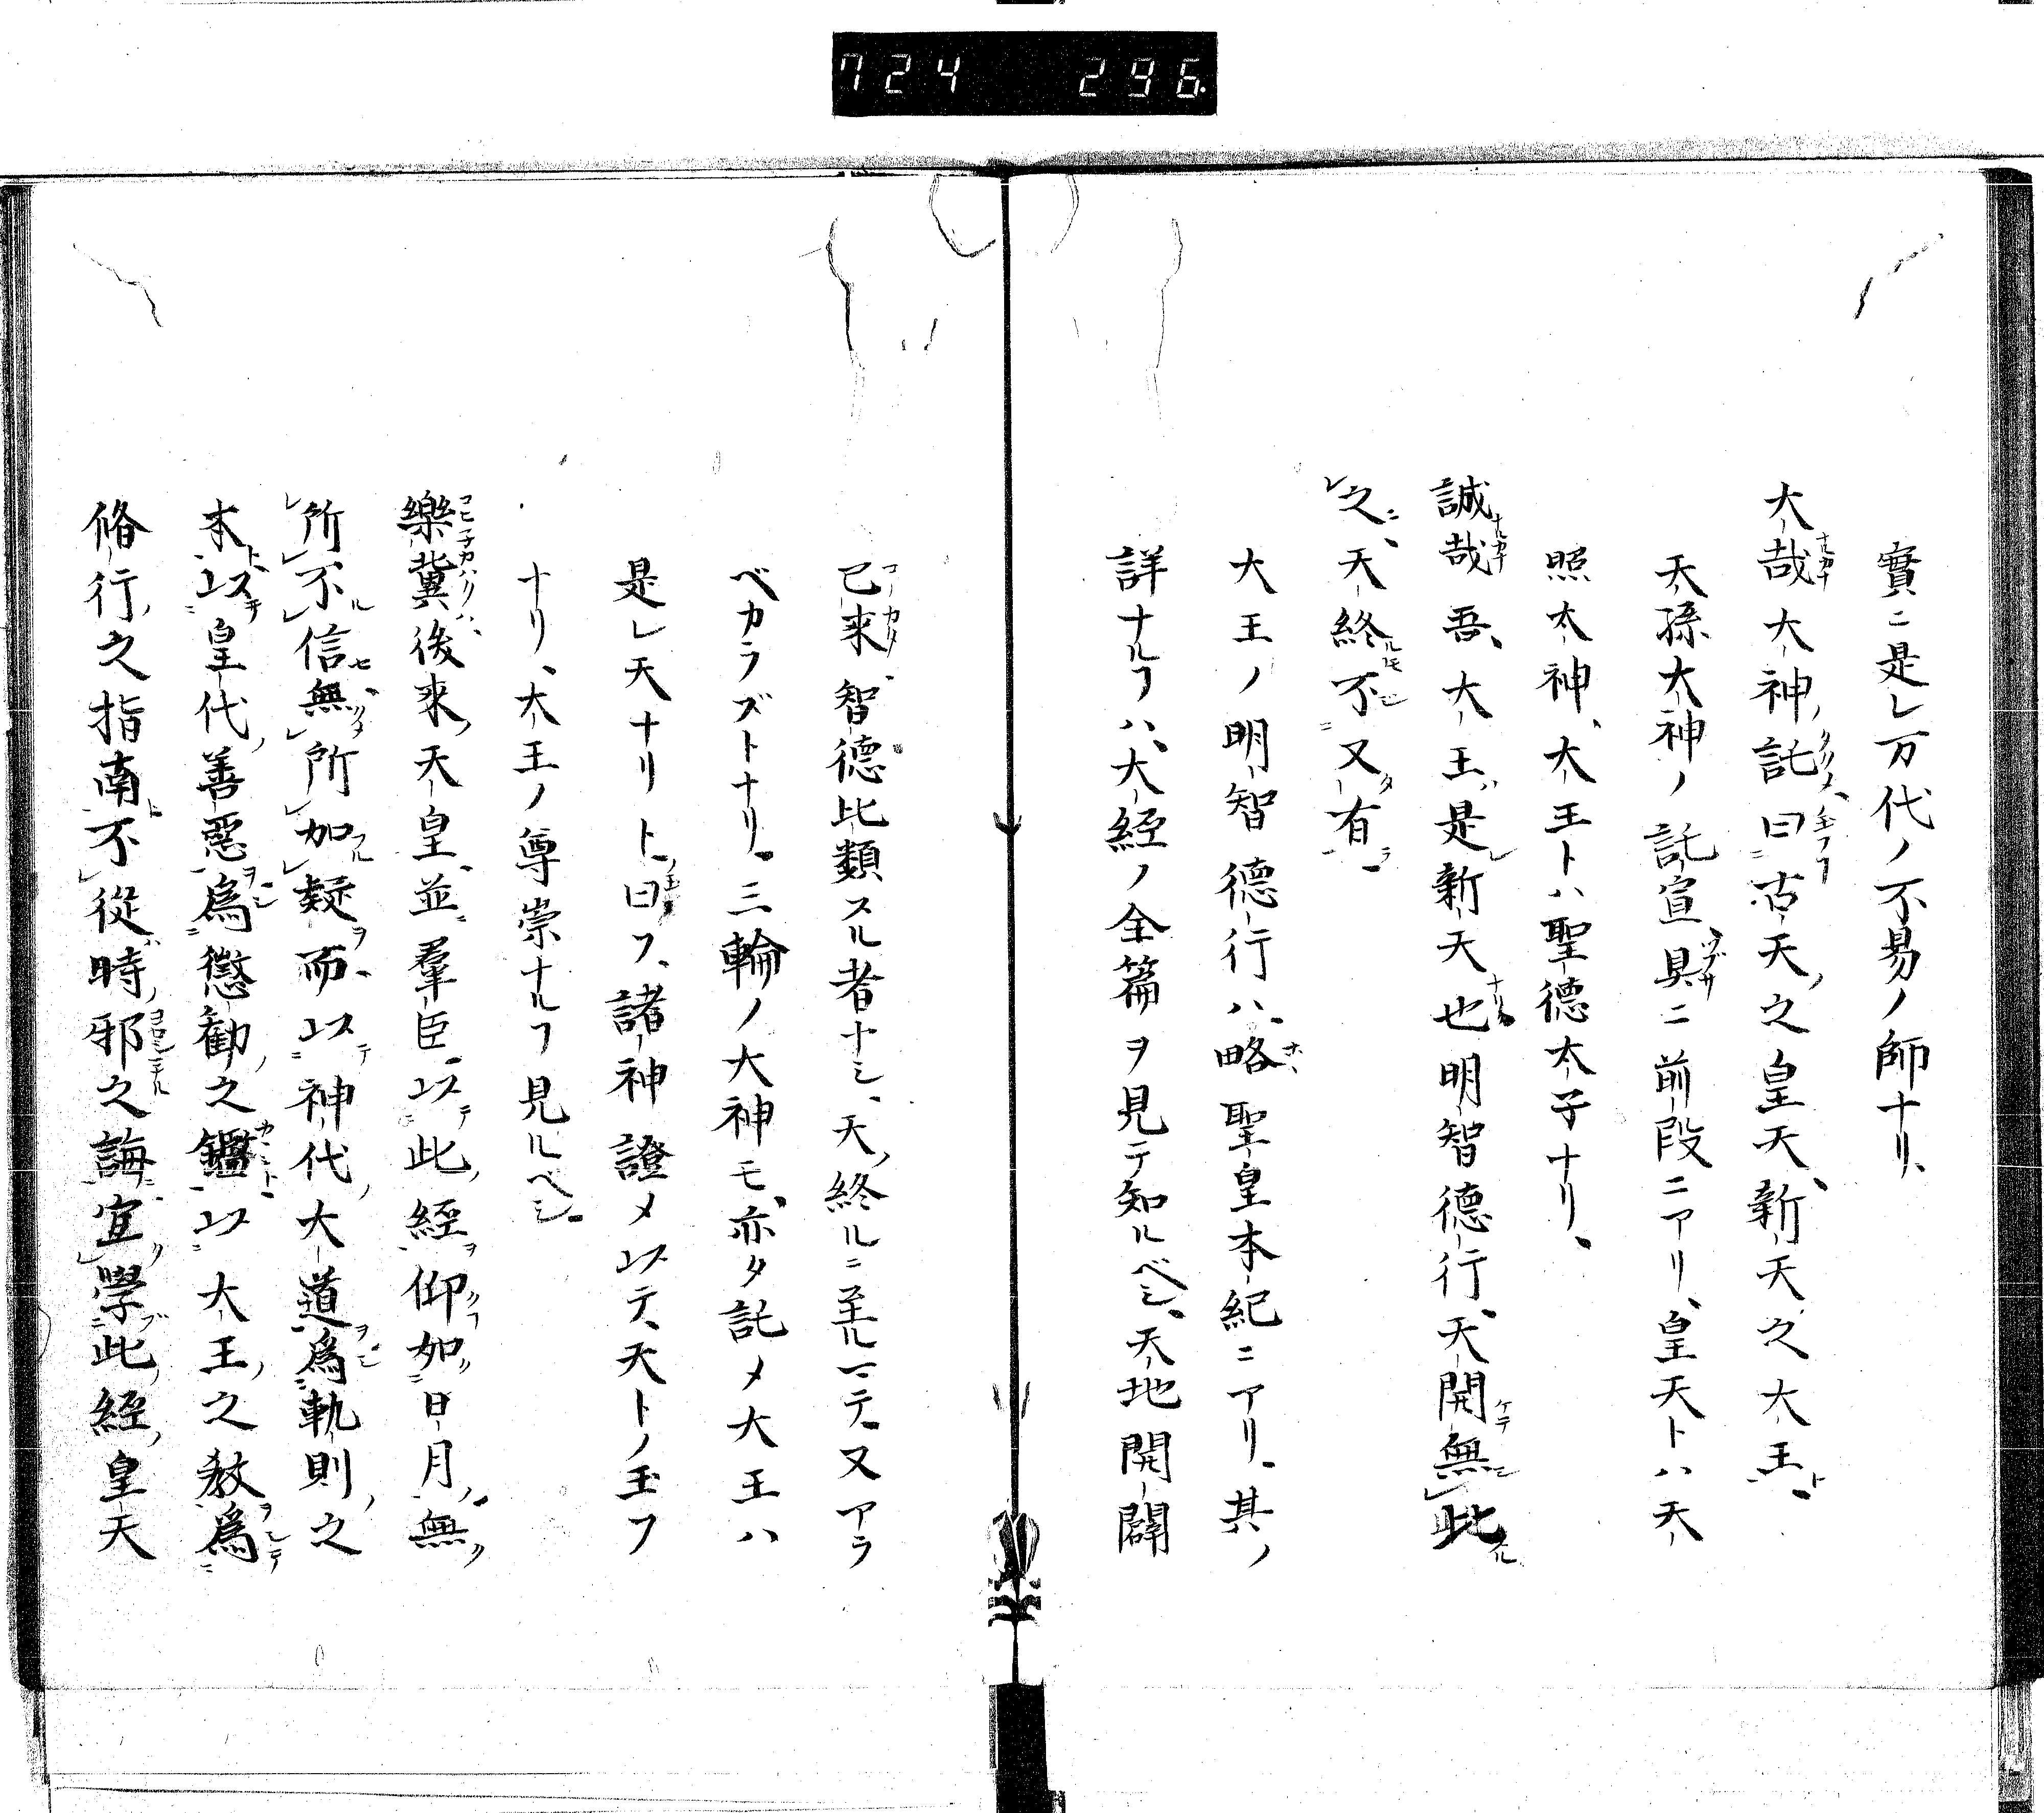 724 296.
實ニ是レ万代ノ不易ノ師ナリ、
大哉大神託曰古天之皇天新天之大王
天孫大神ノ託宣具ニ前段ニアリ、皇天トハ天
照大神、大王トハ聖德太子ナリ、
誠哉吾大王是新天也明智德行天開無此
之天終不又有
大王ノ明智德行ハ、略聖皇本紀ニアリ、其ノ
詳ナルヿハ、大経ノ全篇ヲ見テ知ルベシ、天地開闢
已来智德比類スル者ナシ、天終ルニ至ルマテ、又アラ
ベカラズトナリ、三輪ノ大神モ、亦タ託メ大王ハ
是レ天ナリト曰フ、諸神證メ以テ、天トノ玉フ
ナリ、大王ノ尊崇ナルヿ見ルベシ、
樂冀後來天皇並羣臣以此經仰如日月無
所不信無所加疑而以神代大道爲軌則之
本以皇代善惡爲懲勸之鑑以大王之教爲
脩行之指南不從時邪之誨宜學此經皇天